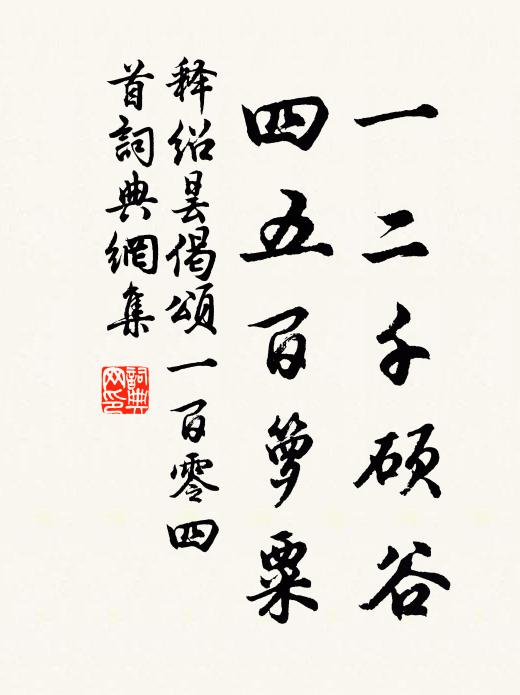 一二千硕谷
四五百箩粟
释绍昙偈颂一百零四
首詞典網集
詞典网印